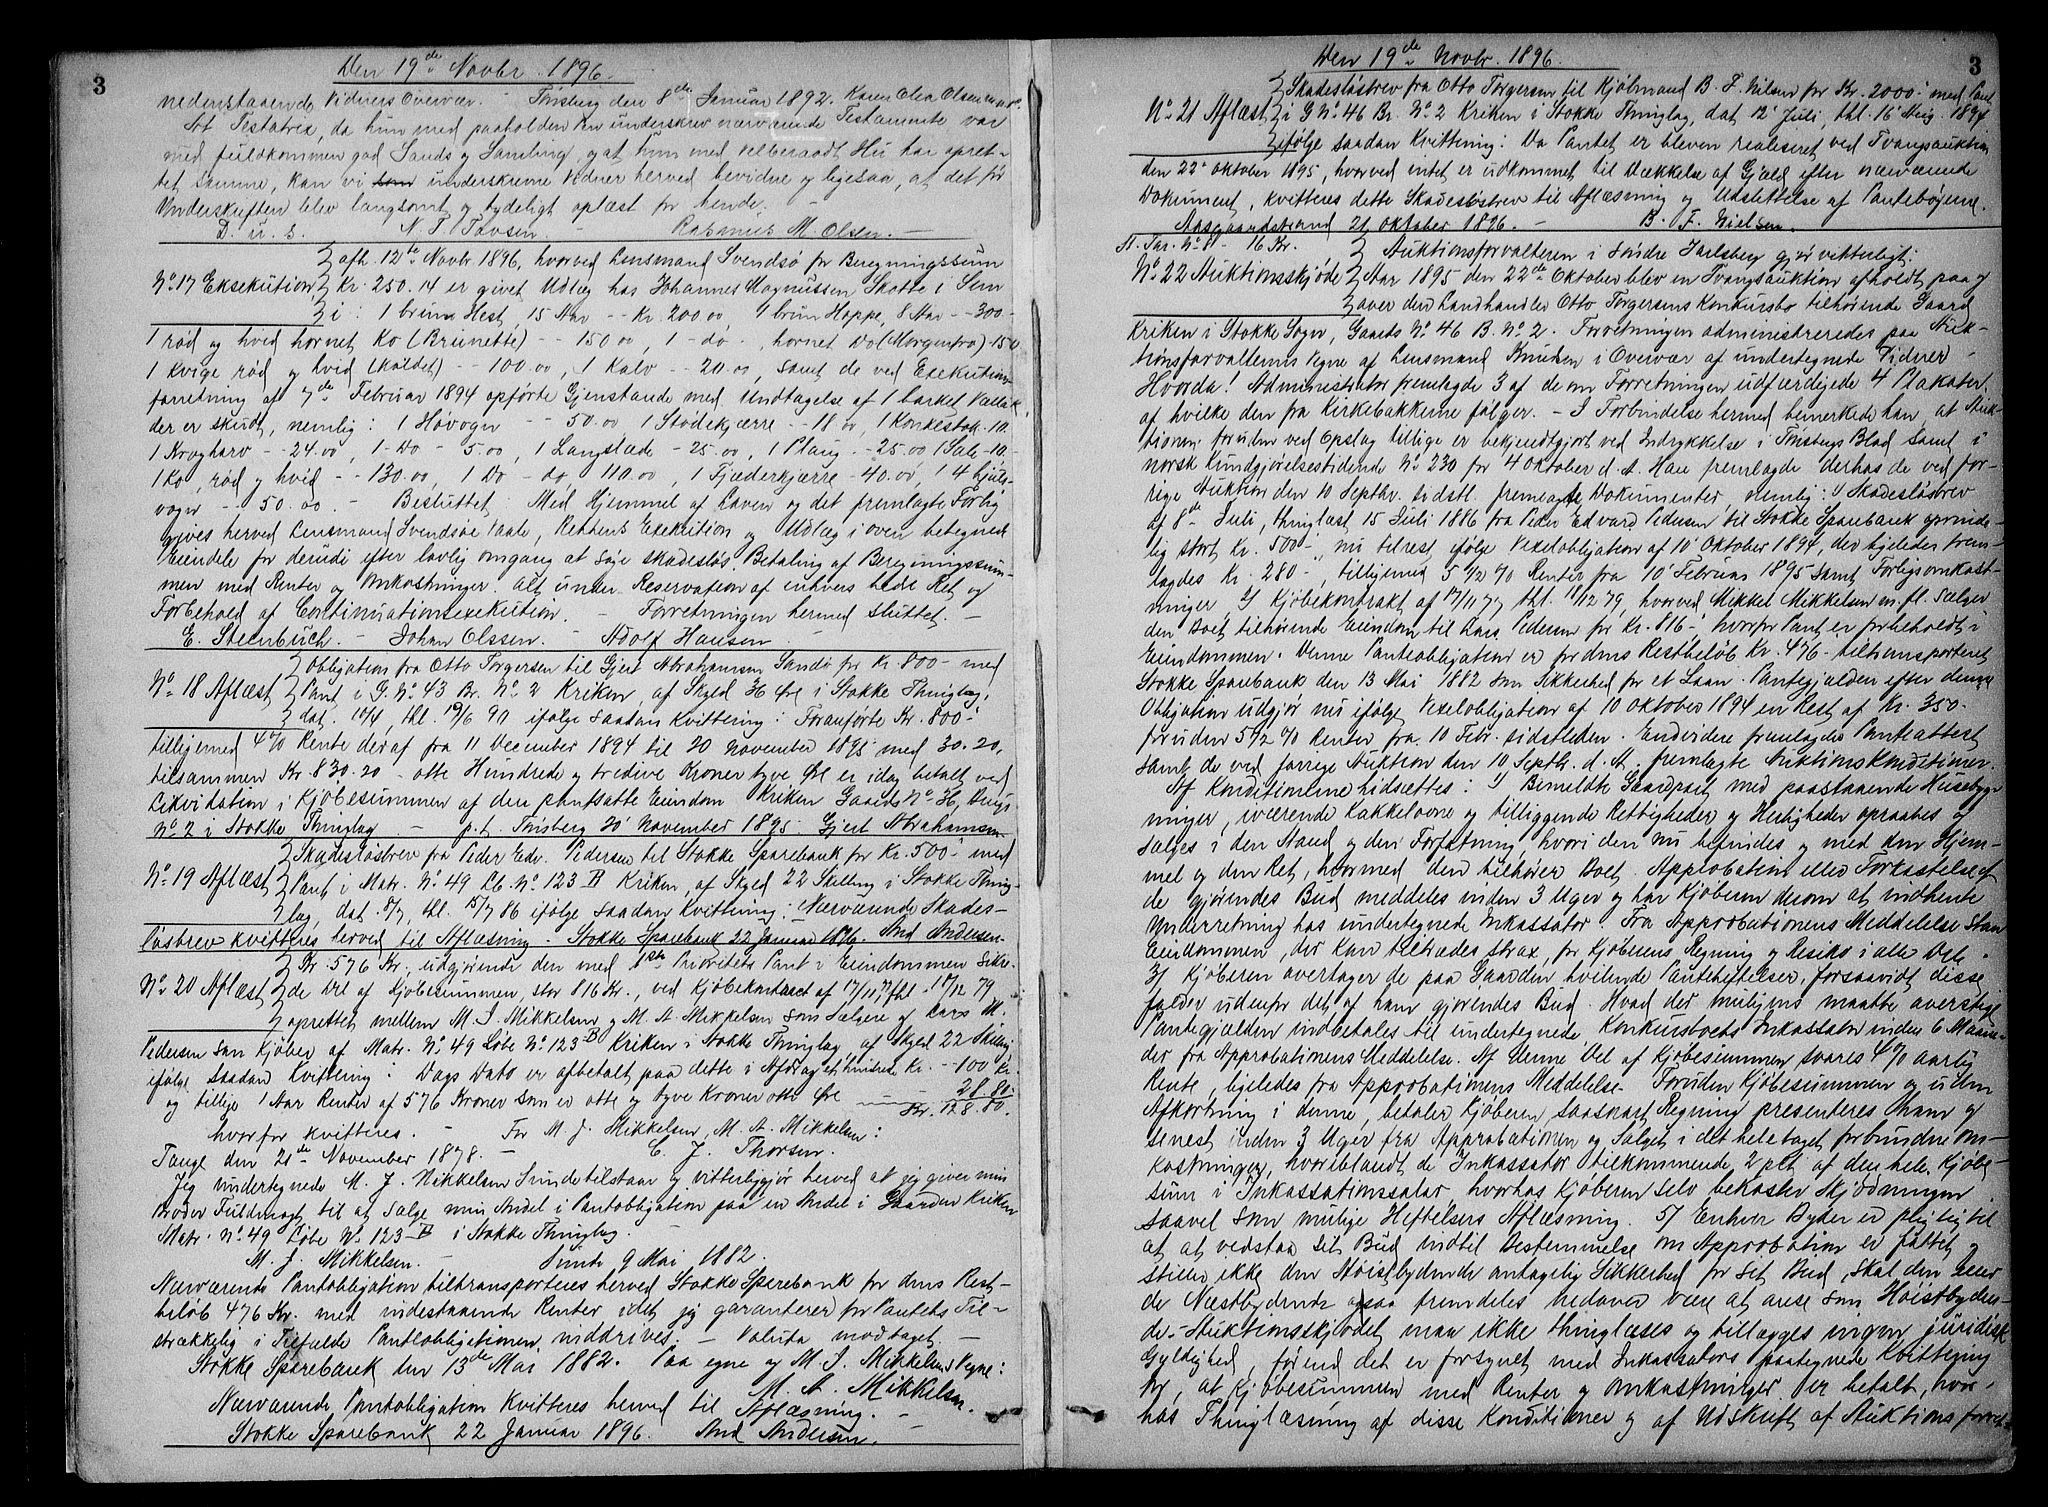 3
Den 19de Novbr. 1896.
nedenstaaende Vidners Overvær. - Tønsberg den 8de Januar 1892. Karen Olea Olsen
At Testatrix, da hun med paaholden Pen underskrev nærværende Testamente var
med fuldkommen god Sands og Samling, og at hun med velberaadt Hu har opret-
tet samme, kan vi som underskrevne Vidner herved bevidne ligesaa, at det før
Underskriften blev langsomt og tydeligt oplæst for hende. -
D. u. s. N. T. Tovsen. - Rasmus M. Olsen. -
afh. 12te Novbr 1896, hvorved Lensmand Svendsø for Beregningssum
No 17 Eksekution Kr. 250.14 er givet Udlæg hos Johannes Magnussen Skotte i Sem
i: 1 brun Hest 15 Aar -- Kr. 200.00, 1 brun Hoppe, 8 Aar -- 300-
1 rød og hvid hornet Ko (Brunette) -- 150.00, 1 - do -, hornet Do (Morgenfro) - 150
1 Kvige rød og hvid (kaldet) -- 100.00, 1 Kalv -- 20.00, samt de ved Exekutions-
forretning af 7de Februar 1894 opførte Gjenstande med Undtagelse af 1 borket Vallak,
der er skudt, nemlig: 1 Høvogn -- 50.00 1 Stødekjærre -- 18.00, 1 Konkestok - 10.
1 Krogharv -- 24.00, 1 - Do - 5.00, 1 Langslæde - 25.00, 1 Plaug -- 25.00 1 Sele - 10.-
1 Ko, rød og hvid -- 130.00, 1 Do - do 110.00, 1 Fjæderkjærre - 40.00, 1 4 hjuls-
vogn -- 50.00 - Besluttet. Med Hjemmel af Loven og det fremlagte Forlig
gives herved Lensmand Svendsøe Rettens Exekution og Udlæg i oven betegnede
Eiendele for derudi efter lovlig omgang at søge skadesløs Betaling af Beregningssum-
men med Renter og Omkostninger. Alt under Reservation af enhvers bedre Ret og
Forbehold af Continuationsexekution. - Forretningen hermed sluttet. -
E. Steenbuch. - Johan Olssen. - Adolf Hansen -
Obligation fra Otto Torgersen til Gjert Abrahamsen Sandø for Kr. 800 - med
No 18 Aflæst Pant i G. No 43 Br. No 2 Kriken af Skyld 36 Øre i Stokke Thinglag,
dat. 10/4, thl. 19/6 90 ifølge saadan Kvittering: Foranførte Kr. 800-
tilligemed 4% Rente deraf fra 11 December 1894 til 20 November 1895 med 30.20,
tilsammen Kr. 830.20 - otte Hundrede og tredive Kroner tyve Øre er idag betalt ved
Likvidation i Kjøbesummen af den pantsatte Eiendom Kriken Gaards No 36, Brugs
No 2 i Stokke Thinglag - p.t. Tønsberg 20 November 1895. Gjert Abrahamsen
Skadesløsbrev fra Peder Edv. Pedersen til Stokke Sparebank for Kr. 500 - med
No 19 Aflæst Pant i Matr. No 49 Lb. No 123 B Kriken, af Skyld 22 Skilling i Stokke Thing-
lag, dat. 8/7, thl. 15/7 86 ifølge saadan Kvittering: Nærværende Skades-
løsbrev kvitteres herved til Aflæsning. Stokke Sparebank 22 Januar 1896. And Andersen.
Kr 576 Kr., udgjørende den med 1ste Prioritets Pant i Eiendommen sikre-
No 20 Aflæst de Del af Kjøbesummen, stor 816 Kr., ved Kjøbekontract af 17/11 77, thl. 18/12 79
oprettet mellem M. J. Mikkelsen og M. A. Mikkelsen som Sælgere og Lars M.
Pedersen som Kjøber af Matr. No 49 Løbe No 123 B Kriken i Stokke Thinglag, af Skyld 22 Skilling
ifølge saadan Kvittering: Dags Dato er afbetalt paa dette i Afdrag et hundrede Kr. -- 100 Kr.
og tillige 1 Aar Renter af 576 Kroner som er otte og tyve Kroner otti Øre 28.80.
Kr. 128.80.
hvorfor kvitteres. - For M. J. Mikkelsen, M. A. Mikkelsen:
Tange den 21de November 1878. - C. J. Thorsen.
Jeg undertegnede M. J. Mikkelsen Sunde tilstaar og vitterliggjør herved at jeg giver min
Broder Fuldmagt til at sælge min Andel i Pantobligation paa en Andel i Gaarden Kriken
Matr. No 49 Løbe No 123 B i Stokke Thinglag.
M. J. Mikkelsen. Sunde 9 Mai 1882.
Nærværende Pantobligation tiltransporteres herved Stokke Sparebank for dens Rest-
beløb 476 Kr. med indestaaende Renter idet jeg garanterer for Pantets Til-
strækkelig i Tilfælde Panteobligationen inddrives. - Valuta modtaget. -
Stokke Sparebank den 13de Mai 1882. Paa egne og M. J. Mikkelsens Vegne:
M. A. Mikkelsen.
Nærværende Pantobligation kvitteres herved til Aflæsning. -
Stokke Sparebank 22 Januar 1896. And Andersen.
3
Den 19de Novbr. 1896.
Skadesløsbrev fra Otto Torgersen til Kjøbmand B. F. Nilsen for Kr. 2000 - med Pant
No 21 Aflæst i G No 46 Br. No 2 Kriken i Stokke Thinglag, dat 12 Juli, thl. 16 Aug. 1894
ifølge saadan Kvittering: Da Pantet er bleven realiseret ved Tvangsauktion
den 22 oktober 1895, hvorved intet er udkommet til Dækkelse af Gjæld efter nærværende
Dokument, kvitteres dette Skadesløsbrev til Aflæsning og Udslettelse af Pantebøgerne.
Aasgaardstrand 21 oktober 1896. - B. F. Nielsen.
St. Tax. No 8 - 16 Kr. Auktionsforvalteren i søndre Jarlsberg gjør vitterligt:
No 22 Auktionsskjøde Aar 1895 den 22de Oktober blev en Tvangsauktion afholdt paa og
over den Landhandler Otto Torgersens Konkursbo tilhørende Gaard
Kriken i Stokke Sogn, Gaards No 46 B. No 2. Forretningen administreredes paa Auk-
tionsforvalterens Vegne af Lensmand Knudsen i Overvær af undertegnede Vidner -
Hvorda! Administrator fremlagde 3 af de om Forretningen udfærdigede 4 Plakater
af hvilke den fra Kirkebakkerne følger. - I Forbindelse hermed bemerkede han at Auk-
tionen foruden ved Opslag tillige er bekjendtgjort ved Indrykkelse i Tønsbergs Blad samt i
norsk Kundgjørelsestidende No 230 for 4 Oktober d. A. Han fremlagde derhos de ved for-
rige Auktion den 10 Septbr. sidstl. fremlagte Dokumenter nemlig: 1/ Skadesløsbrev
af 8de Juli, thinglæst 15 Juli 1886 fra Peder Edvard Pedersen til Stokke Sparebank oprinde-
lig stort Kr. 500 -, nu tilrest ifølge Vexelobligation af 10 Oktober 1894, der ligeledes frem-
lagdes Kr. 280 -, tilligemed 5 1/2 % Renter fra 10 Februar 1895 samt Forligsomkost-
ninger 2/ Kjøbekontrakt af 17/11 77 thl. 18/12 79, hvorved Mikkel Mikkelsen m.fl. sælger
den Boet tilhørende Eiendom til Lars Pedersen for Kr. 816 - hvorfor Pant er forbeholdt i
Eiendommen. Denne Panteobligation er for dens Restbeløb Kr. 476 - tiltransporteret
Stokke Sparebank den 13 Mai 1882 som Sikkerhed for et Laan. Pantegjælden efter denne
Obligation udgjør nu ifølge Vexelobligation af 10 Oktober 1894 en Rest af Kr. 350 -
foruden 5 1/2 % Renter fra 10 Febr. sidstleden. Endvidere fremlagdes Panteattest
samt de ved forrige Auktion den 10 Septbr. d. A. fremlagte Auktionskonditioner.
Af Konditionerne hidsættes: 1/ Bemeldte Gaardpart med paastaaende Husebyg-
ninger, iværende Kakkelovne og tilliggende Rettigheder og Herligheder opraabes og
sælges i den Stand og den Forfatning, hvori den nu befindes og med den Hjem-
mel og den Ret, hvormed den tilhører Boet. Approbation eller Forkastelse af
de gjørendes Bud meddeles inden 3 Uger og har Kjøberen derom at indhente
Underretning hos undertegnede Inkassator. Fra Approbationens Meddelelse staar
Eiendommen, der kan tiltrædes strax, for Kjøberens Regning og Risiko i alle Del.
3/ Kjøberen overtager de paa Gaarden hvilende Pantehæftelser, forsaavidt disse
falder indenfor det af ham gjørendes Bud. Hvad der muligens maatte overstige
Pantegjælden indbetales til undertegnede Konkursboets Inkassator inden 6 Maane-
der fra Approbationens Meddelelse. Af denne Del af Kjøbesummen svares 4% aarlig
Rente, ligeledes fra Approbationens Meddelelse. Foruden Kjøbesummen og uden
Afkortning i denne, betaler Kjøberen saasnart Regning presenteres ham og
senest inden 3 Uger fra Approbationen og Salget i det hele taget forbundne om-
kostninger, hvoriblandt de Inkassator tilkommende 2 pct af den hele Kjøbe-
sum i Inkassationssalær hvorhos Kjøberen selv bekoster Skjødningen
saavel som mulige Heftelsers Aflæsning. 5/ Enhver Byder er pligtig til
at at vedstaa sit Bud indtil Bestemmelse om Approbation er fattet og
stiller ikke den Høistbydende antagelig Sikkerhed for sit Bud, skal den eller
de Næstbydende ogsaa fremdeles hedaned være at anse som Høistbyden-
de. - Auktionsskjødet maa ikke thinglæses og tillægges ingen juridisk
Gyldighed, førend det er forsynet med Inkassators paategnede Kvittering
for, at Kjøbesummen med Renter og Omkostninger er betalt, hvor-
hos Thinglæsning af disse Konditioner og af Udskrift af Auktionsforret-